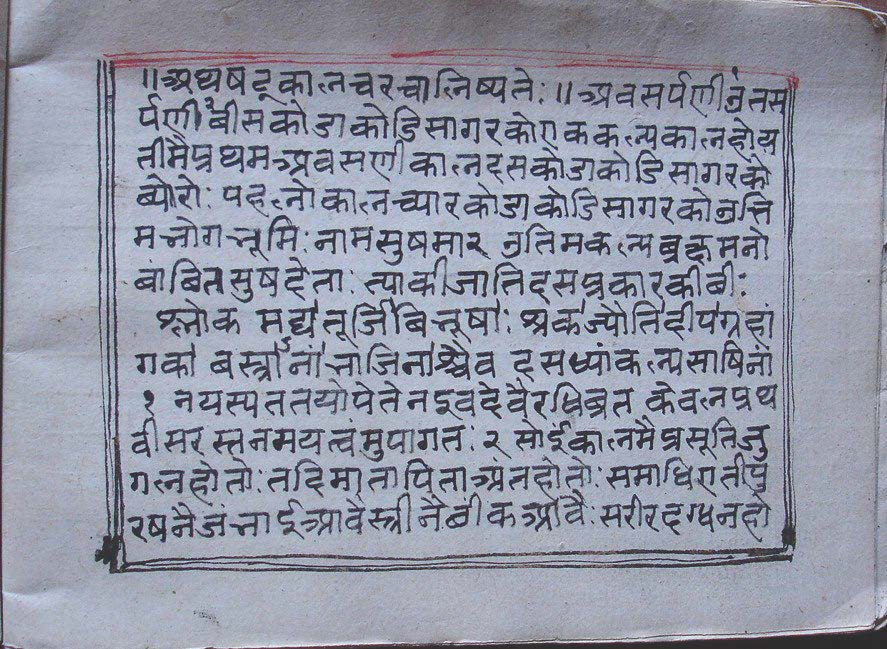 ॥ अथ षट् काल चरचा लिष्यते: ॥ अवसर्पणी उतस
र्पणी बीस कोडाकोडि सागर को एक कल्प काल होय
तीमै प्रथम अवसर्णी काल दस कोडाकोडि सागर को
ब्योरो: पहलो काल च्यार कोडाकोडि सागर को उत्ति
म भोगभूमि: नाम सुषमा २ उतिम कल्प ब्रक्ष मनो
बांबित सुष देता: त्याकी जाति दस प्रकार की बी:
श्लोक मद्य तूर्जि बिभूषा: श्रक ज्योति दीप ग्रहां
गका बस्त्रांनां भाजिनांश्चैव दसध्यां कल्प साषिनां
१ नयस्पततयोपेते नइवदेवैरधिब्रत केवल प्रथ
वी सरस्तनमयत्वंमुपागत: २ सोई काल मै प्रसूति जु
गल होतो: तदि माता पिता अंत होतो: समाधि एती पु
रष नै जंभाई आवै स्त्री नै बीक आवै: सरीर दग्ध न हो